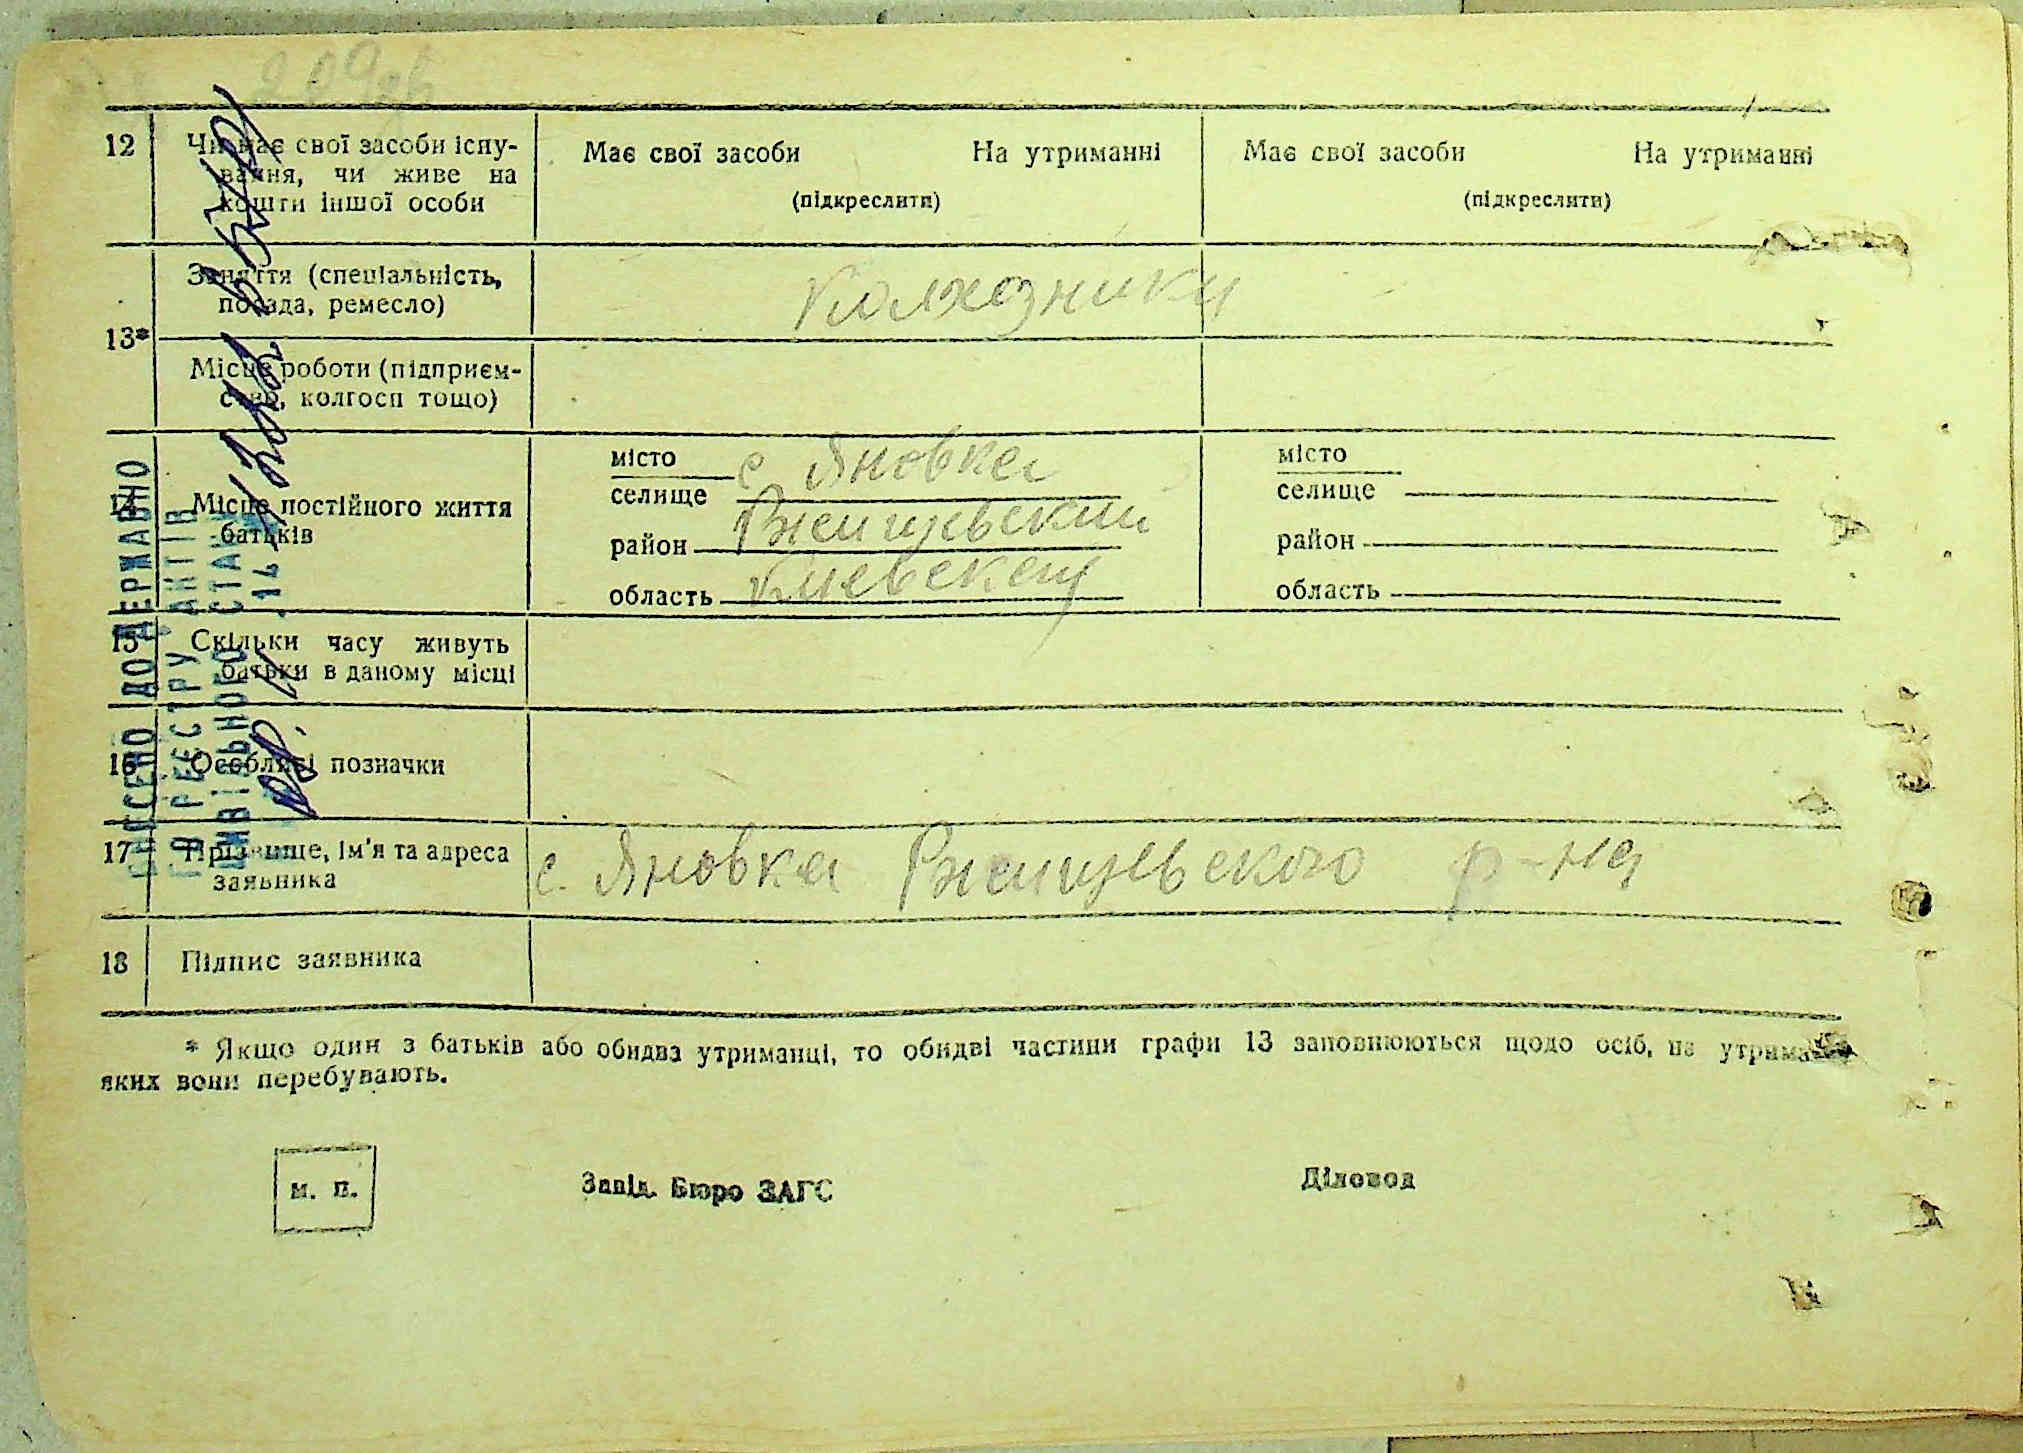 209зв
12 Чи має свої засоби існу-
вання, чи живе на
кошти іншої особи
Має свої засоби На утриманні
(підкреслити)
Має свої засоби На утриманні
(підкреслити)
13*
Заняття (спеціальність,
посада, ремесло)
колхозники
Місце роботи (підприєм-
ство, колгосп тощо)
14 Місце постійного життя
батьків
місто
селище с Яновка
район Ржищевский
область Киевская
місто
селище
район
область
15 Скільки часу живуть
батьки в даному місці
16 Особливі позначки
17 Прізвище, ім'я та адреса
заявника
с. Яновка Ржищевского р-на
18 Підпис заявника
* Якщо один з батьків або обидва утриманці, то обидві частини графи 13 заповнюються щодо осіб, на
яких вони перебувають.
м. п.
Завід. Бюро ЗАГС
Діловод
ВНЕСЕНО ДО ДЕРЖАВНО
ГО РЕЄСТРУ АКТІВ
ЦИВІЛЬНОГО СТАНУ